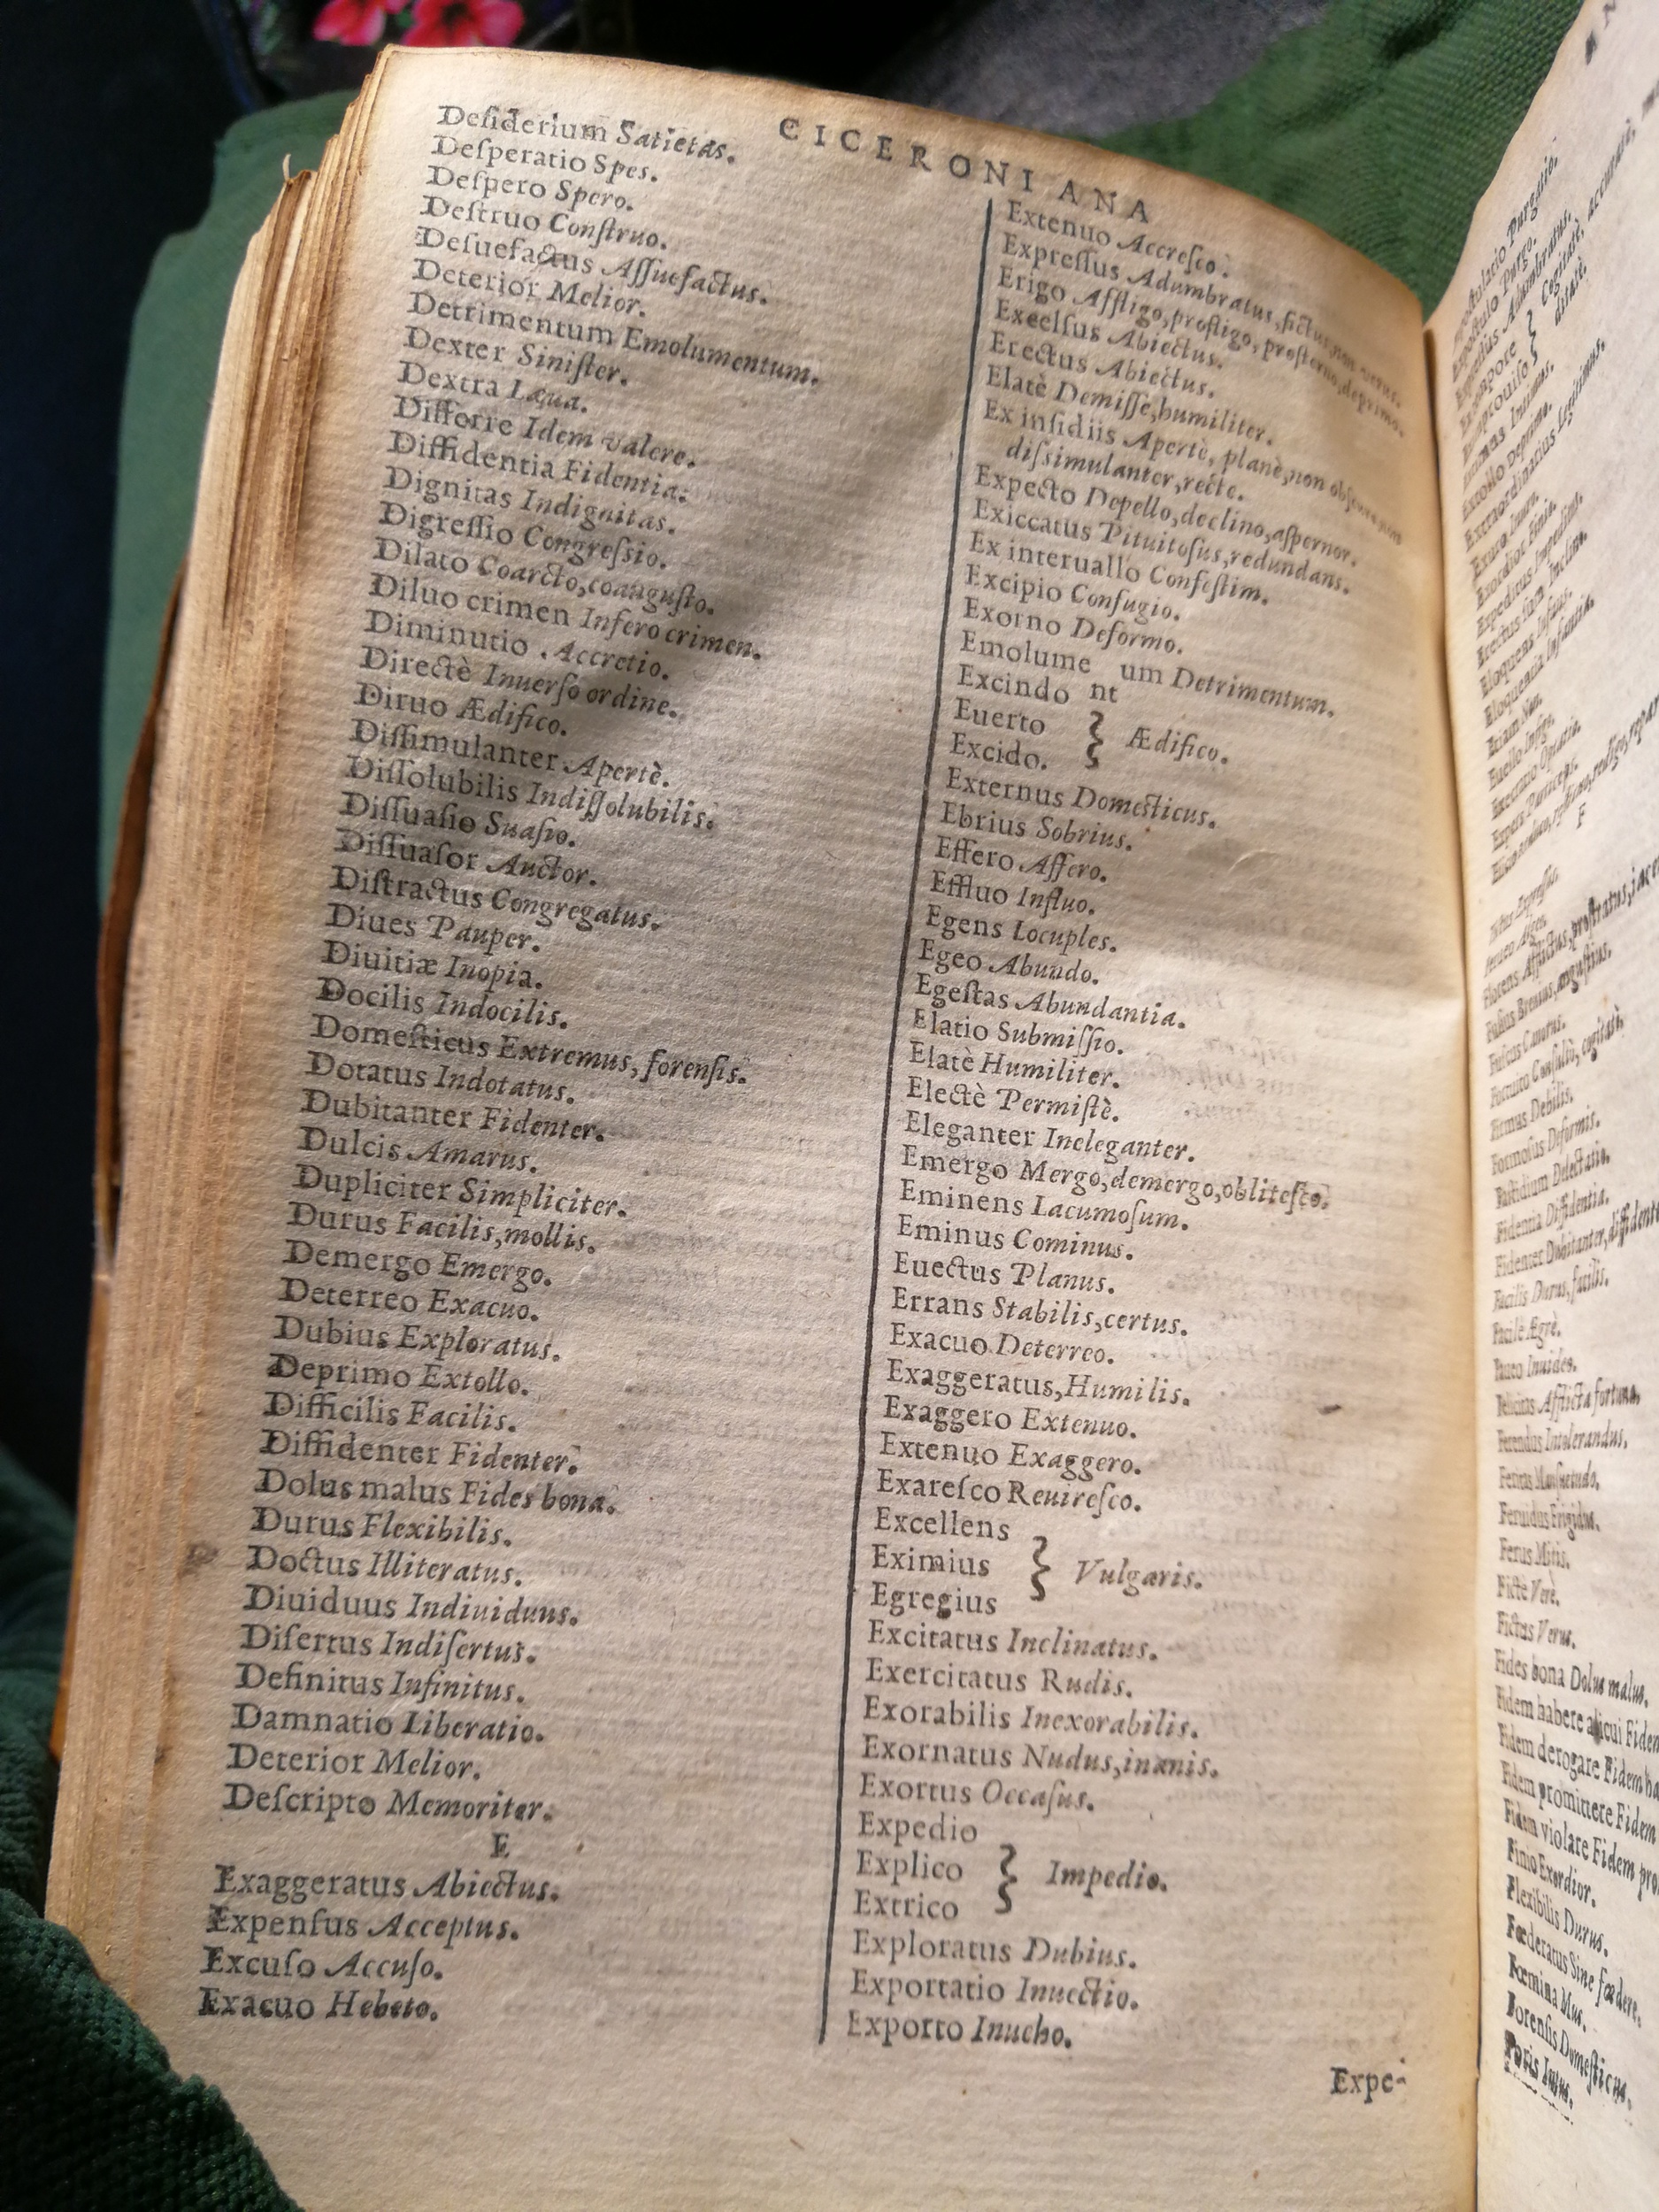 CICERONIANA
Deſiderium Satietas.
Deſperatio Spes.
Deſpero Spero.
Deſtruo Conſtruo.
Deſuefactus Aſſuefactus.
Deterior Melior.
Detrimentum Emolumentum.
Dexter Siniſter.
Dextra Læua.
Differre Idem valere.
Diffidentia Fidentia.
Dignitas Indignitas.
Digreſſio Congreſsio.
Dilato Coarcto, coanguſto.
Diluo crimen Infero crimen.
Diminutio Accretio.
Directè Inuerſo ordine.
Diruo Ædifico.
Diſſimulanter Apertè.
Diſſolubilis Indiſſolubilis.
Diſſuaſio Suaſio.
Diſſuaſor Auctor.
Diſtractus Congregatus.
Diues Pauper.
Diuitiæ Inopia.
Docilis Indocilis.
Domeſticus Extremus, forenſis.
Dotatus Indotatus.
Dubitanter Fidenter.
Dulcis Amarus.
Dupliciter Simpliciter.
Durus Facilis, mollis.
Demergo Emergo.
Deterreo Exacuo.
Dubius Exploratus.
Deprimo Extollo.
Difficilis Facilis.
Diffidenter Fidenter.
Dolus malus Fides bona.
Durus Flexibilis.
Doctus Illiteratus.
Diuiduus Indiuiduus.
Diſertus Indiſertus.
Definitus Infinitus.
Damnatio Liberatio.
Deterior Melior.
Deſcripto Memoriter.
E
Exaggeratus Abiectus.
Expenſus Acceptus.
Excuſo Accuſo.
Exacuo Hebeto.
Extenuo Accreſco.
Expreſſus Adumbratus, fictus, non verus.
Erigo Affligo, profligo, proſterno, deprimo.
Excelſus Abiectus.
Erectus Abiectus.
Elatè Demiſſè, humiliter.
Ex inſidiis Apertè, planè, non obſcurè, non
diſsimulanter, recte.
Expecto Depello, declino, aſpernor.
Exiccatus Pituitoſus, redundans.
Ex interuallo Confeſtim.
Excipio Confugio.
Exorno Deformo.
Emolume um Detrimentum.
Excindo nt
Euerto
Excido. Ædifico.
Externus Domeſticus.
Ebrius Sobrius.
Effero Affero.
Effluo Influo.
Egens Locuples.
Egeo Abundo.
Egeſtas Abundantia.
Elatio Submiſſio.
Elatè Humiliter.
Electè Permiſtè.
Eleganter Ineleganter.
Emergo Mergo, demergo, obliteſco.
Eminens Lacumoſum.
Eminus Cominus.
Euectus Planus.
Errans Stabilis, certus.
Exacuo Deterreo.
Exaggeratus, Humilis.
Exaggero Extenuo.
Extenuo Exaggero.
Exareſco Reuireſco.
Excellens
Eximius Vulgaris.
Egregius
Excitatus Inclinatus.
Exercitatus Rudis.
Exorabilis Inexorabilis.
Exornatus Nudus, inanis.
Exortus Occaſus.
Expedio
Explico Impedio.
Extrico
Exploratus Dubius.
Exportatio Inuectio.
Exporto Inueho.
Expe-
Firmus Debilis.
Formoſus Deformis.
Faſtidium Delectatio.
Fidentia Diffidentia.
Facilis Durus,
Facilè Ægrè.
Felicitas Afflicta fortuna.
Ferendus Intolerandus.
Feritas Manſuetudo.
Feruidus Frigidus.
Ferus Mitis.
Ficte Verè.
Fictus Verus.
Fides bona Dolus malus.
Fidem habere alicui
Fidem derogare
Fidem promittere Fidem
Fidem violare Fidem
Finio Exordior.
Flexibilis Durus.
Fœderatus Sine fœdere.
Fœmina Mas.
Forenſis Domeſticus.
Foris Intus.